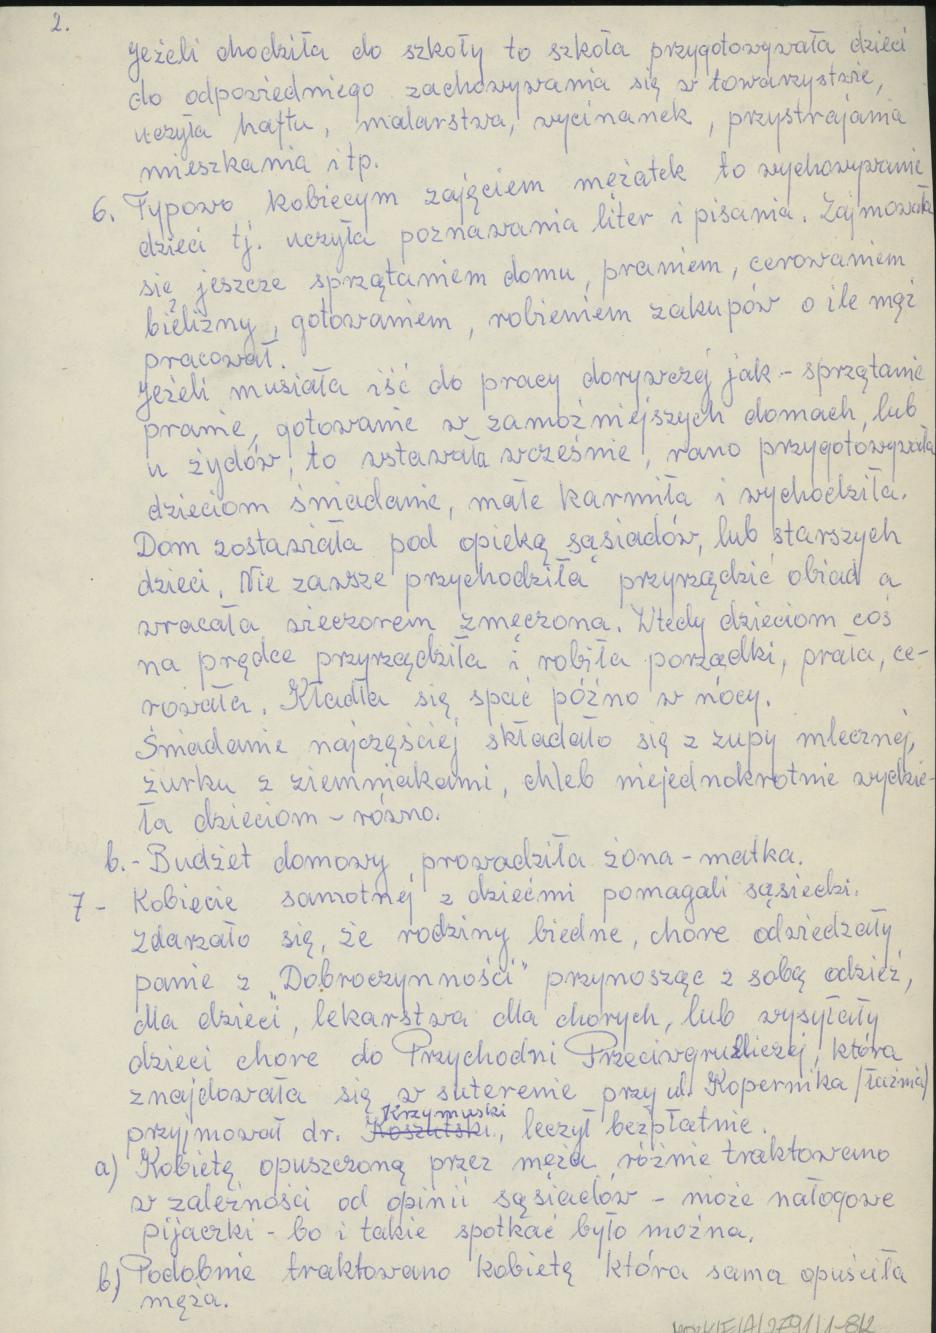 2.
Jeżeli chodziła do szkoły to szkoła przygotowywała dzieci
do odpowiedniego zachowywania się w towarzystwie,
uczyła haftu, malarstwa, wycinanek, przystrajania
mieszkania itp.
6. Typowo kobiecym zajęciem mężatek to wychowywanie
dzieci tj. uczyła poznawania liter i pisania. Zajmowała
się jeszcze sprzątaniem domu, praniem, cerowaniem
bielizny, gotowaniem, robieniem zakupów o ile mąż
pracował.
Jeżeli musiała iść do pracy dorywczej jak - sprzątanie
pranie, gotowanie w zamożniejszych domach, lub
u żydów, to wstawała wcześnie, rano przygotowywała
dzieciom śniadanie, małe karmiła i wychodziła.
Dom zostawiała pod opieką sąsiadów, lub starszych
dzieci. Nie zawsze przychodziła przyrządzić obiad a
wracała wieczorem zmęczona. Wtedy dzieciom coś
na prędce przyrządziła i robiła porządki, prała, ce-
rowała. Kładła się spać późno w nocy.
Śniadanie najczęściej składało się z zupy mlecznej,
żurku z ziemniakami, chleb niejednokrotnie wydzie-
ła dzieciom - równo.
b. - Budżet domowy prowadziła żona - matka.
7 - Kobiecie samotnej z dziećmi pomagali sąsiedzi.
Zdarzało się, że rodziny biedne, chore odwiedzały
panie z "Dobroczynności" przynosząc z sobą odzież,
dla dzieci, lekarstwa dla chorych, lub wysyłały
dzieci chore do Przychodni Przeciwgruźliczej, która
znajdowała się w suterenie przy ul. Kopernika /łaźnia/
Krzymuski
przyjmował dr. Koszutski, leczył bezpłatnie.
a) Kobietę opuszczoną przez męża różnie traktowano
w zależności od opinii sąsiadów - może nałogowe
pijaczki - bo i takie spotkać było można.
b) Podobnie traktowano kobietę która sama opuściła
męża.